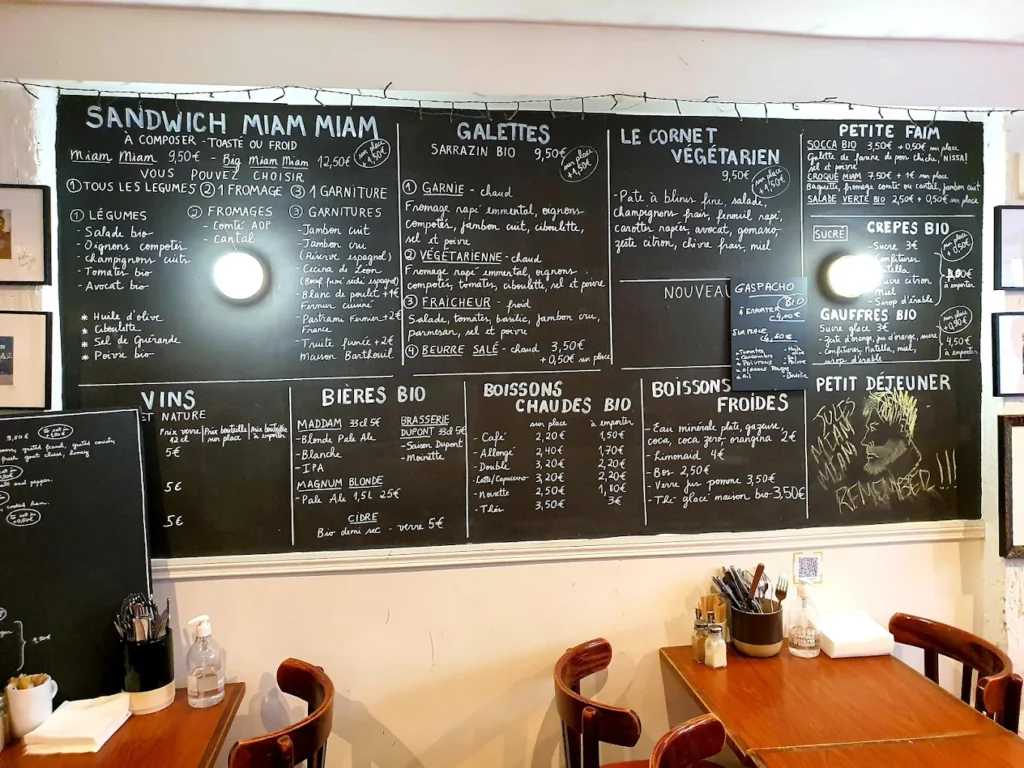 SANDWICH MIAM MIAM
À COMPOSER - TOASTÉ OU FROID
Miam Miam 9,50€ - Big Miam Miam 12,50€
sur place +1,50€
VOUS POUVEZ CHOISIR
① TOUS LES LEGUMES ② 1 FROMAGE ③ 1 GARNITURE
① LÉGUMES
- Salade bio
- Oignons compotés
champignons cuits
- Tomates bio
- Avocat bio
* Huile d'olive
* Ciboulette
* Sel de Guérande
* Poivre bio
② FROMAGES
- Comté AOP
- Cantal
③ GARNITURES
- Jambon cuit
- Jambon cru
(Réserve espagnol)
- Cecina de León
(Bœuf fumé séché espagnol)
- Blanc de poulet +1€
Fermier cuisiné
- Pastrami Fermier +2€
France
- Truite fumée +2€
Maison Barthouil
GALETTES
SARRAZIN BIO 9,50€
sur place +1,50€
① GARNIE - chaud
Fromage rapé emmental, oignons
compotés, jambon cuit, ciboulette,
sel et poivre
② VÉGÉTARIENNE - chaud
Fromage rapé emmental, oignons
compotés, tomates, ciboulette, sel et poivre
③ FRAÎCHEUR - froid
Salade, tomates, basilic, jambon cru,
parmesan, sel et poivre
④ BEURRE SALÉ - chaud 3,50€
+0,50€ sur place
LE CORNET
VÉGÉTARIEN
9,50€
sur place +1,50€
- Pate à blinis fine, salade,
champignons frais, fenouil rapé,
carottes rapées, avocat, gomasio,
zeste citron, chèvre frais, miel
NOUVEAU
GASPACHO
BIO
à EMPORTER
4,00€
SUR PLACE
4,50€
- Tomates
- Concombre
- Poivrons
- Oignons Rouges
- Ail
- Huile olive
- Poivre
- Basilic
PETITE FAIM
SOCCA BIO 3,50€ +0,50€ sur place
Galette de farine de pois chiche, NISSA!
sel et poivre
CROQUE MIAM 7,50€ +1€ sur place
Baguette, fromage comté ou cantal, jambon cuit
SALADE VERTE BIO 2,50€ +0,50€ sur place
CRÊPES BIO
SUCRÉ
- Sucre 3€
- Confitures
- Nutella
- Sucre citron
- Miel
- Sirop d'érable
sur place +0,50€
4,00€
à emporter
GAUFFRES BIO
Sucre glace 3€
- Zeste d'orange, jus d'orange, miel
- Confitures, Nutella, miel,
sirop d'érable
sur place +0,90€
4,50€
à emporter
VINS
ET NATURE
Prix verre 12 cl
Prix bouteille sur place
Prix bouteille à emporter
5€
5€
5€
BIÈRES BIO
MADDAM 33cl 5€
- Blonde Pale Ale
- Blanche
- IPA
MAGNUM BLONDE
- Pale Ale 1,5L 25€
BRASSERIE
DUPONT 33cl 5€
- Saison Dupont
- Moinette
CIDRE
Bio demi sec - verre 5€
BOISSONS
CHAUDES BIO
sur place à emporter
- Café 2,20€ 1,50€
- Allongé 2,40€ 1,70€
- Double 3,20€ 2,20€
- Latte/Capuccino 3,20€ 2,20€
- Noisette 2,50€ 1,80€
- Thés 3,50€ 3€
BOISSONS
FROIDES
- Eau minérale plate, gazeuse,
coca, coca zero, orangina 2€
- Limonaid 4€
- Bos 2,50€
- Verre jus pomme 3,50€
- Thé glacé maison bio 3,50€
PETIT DÉJEUNER
JULES
MIAM
MIAM
REMEMBER!!!
9,50€